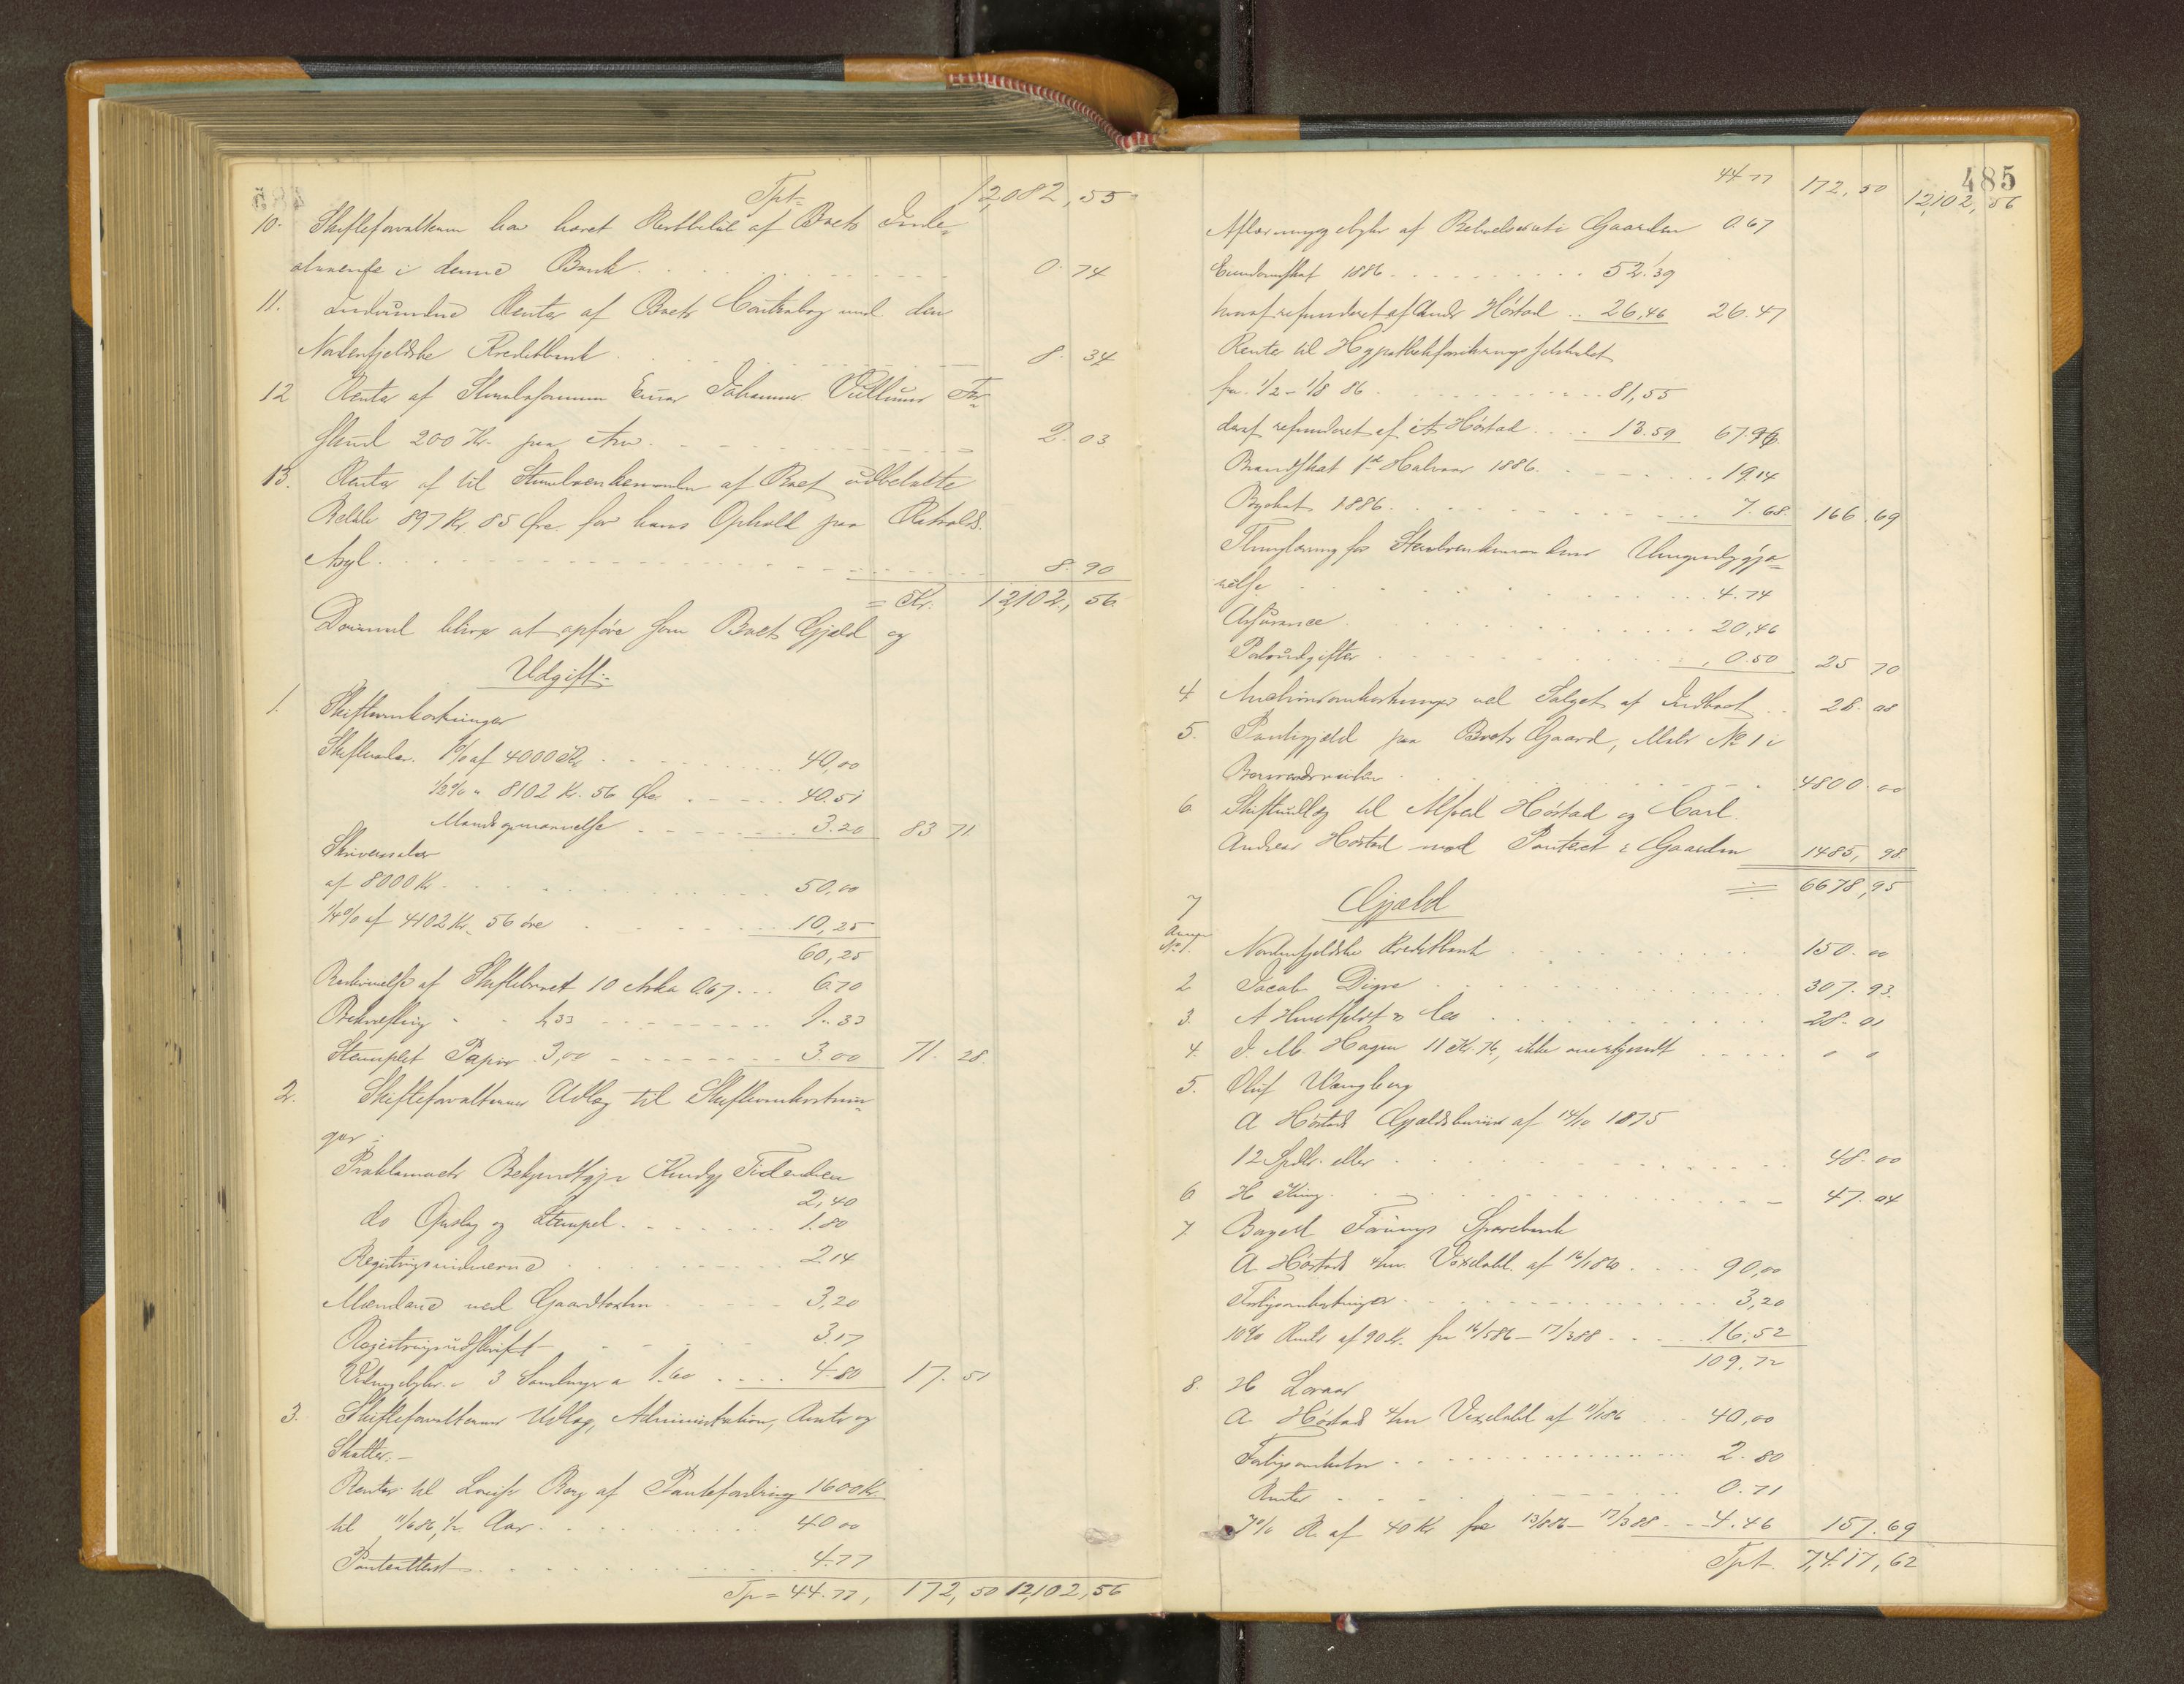 Tpt= 12,082,55
10. Skifteforvalteren har hævet Restbeløb af Boets Inde=
staaende i denne Bank 0.74
11. Indvundne Renter af Boets Contrabog med den
Nordenfjeldske Kreditbank 8.34
12 Renter af Johannes
200 Kr. paa Arv 2.03
13. Renter af til af Boet udbetalte
Beløb 897 Kr. 85 Øre for hans Ophold paa Rotvolds
Asyl 8.90
= Kr. 12,102,56
Derimod bliver at opføre som Boets Gjæld og
Udgift:
1. Skifteomkostninger
Skiftesalær 1% af 4000 Kr 40,00
1/2% " 8102 Kr. 56 Øre 40.51
Mænds opnævnelse 3.20 83 71.
Skriversalær
af 8000 Kr. 50,00
1/4% af 4102 Kr. 56 øre 10,25
60,25
Beskrivelse af Skiftebrevet 10 Arka 0.67 6.70
Bekræftelse 1,33 1.33
Stemplet Papir 3,00 3.00 71. 28.
2. Skifteforvalterens Udlæg til Skifteomkostnin=
ger:
Proklamaets Bekjendtgj. i Kundgj Tidenden
2,40
do Opslag og Stempel 1.80
2.14
Mændene ved Gaardtaxten 3,20
Registreringsudskrift 3.17
3 Samlinger a 1.60 4.80 17.51
3. Skifteforvalterens Udlæg, Administration, Renter og
Skatter.
Renter til Borg af Pantefordring 1600 Kr.
til 11/6 86, 1/2 Aar 40 00
Panteattest 4.77
Tp = 44.77, 172,50 12,102,56
485
44 77 172,50 12,102,56
af i Gaarden 0.67
Eiendomsskat 1886 52.39
heraf refunderet af Høstad 26,46 26.47
Renter til Hypothekforenings selskabet
fra 1/2 - 1/8 86 81,55
deraf refunderet af A Høstad 13.59 67.96
Brandskat 1ste Halvaar 1886 19.14
Byskat 1886 7.68 166.69
Umyndiggjø=
relse 4.74
Assurance 20,46
Portoudgifter 0.50 25 70
4. Auctionsomkostninger ved Salget af Indboet 28.08
5. Pantegjæld paa Boets Gaard, Matr No 1 i
4800.00
6. Skifteudlæg til Alfred Høstad og Carl
Andreas Høstad med Panteret i Gaarden 1485,98
6678,95
7 Gjæld
No 1. Nordenfjeldske Kreditbank 150.00
2 Jacob Digre 307.93
3. A Huitfeldt & Co 28.01
4. J. M. Hagen 11 Kr. 76, ikke anerkjendt " "
5. Oluf Wangberg
A Høstads Gjældsbevis af 14/10 1875
12 Spdlr. eller 48.00
6 H King 47.04
7. Sparebank
A. Høstads 90,00
Forligsomkostninger 3,20
10% Rente af 90 Kr. fra 16/5 86 - 17/3 88 16.52
109.72
8. H
A Høstads af 11/1 86 40,00
2.80
Renter 0.71
7% R. af 40 Kr fra 13/8 86 - 17/3 88 4.46 157.69
Tpt. 7,417,62